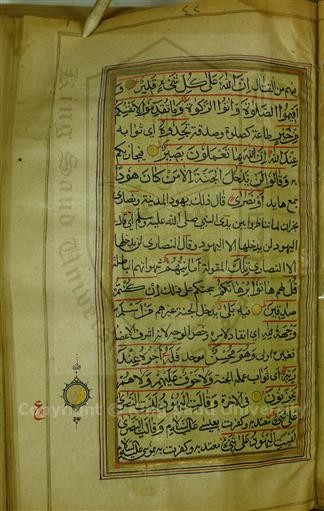 فيهم من القتال ان الله على كل شيء قدير و
اقيموا الصلوة واتوا الزكوة وما تقدموا لانفسكم
من خير طاعة كصلوة وصدقة تجدوه اي ثوابه
عند الله ان الله بما تعملون بصير فيجازيكم
وقالوا لن يدخل الجنة الا من كان هودا
جمع هايد او نصارى قال ذلك يهود المدينة ونصارى
نجران لما تناظروا بين يدي النبي صلى الله عليه وسلم اي قال
اليهود لن يدخلها الا اليهود وقال النصارى لن يدخلها
الا النصارى تلك المقولة امانيهم شهواتهم الباطلة
قل لهم هاتوا برهانكم حجتكم على ذلك ان كنتم
صدقين فيه بلى يدخل الجنة غيرهم من اسلم
وجهه لله اي انقاد لامره وخص الوجه لانه اشرف الاعضا
فغيره اولى وهو محسن موحد فله اجره عند
ربه اي ثواب عمله الجنة ولا خوف عليهم ولا هم
يحزنون في الاخرة وقالت اليهود ليست النصرى
على شيء معتد به وكفرت بعيسى عليه السلام وقالت النصرى
ليست اليهود على شيء معتد به وكفرت بموسى عليه السلام
ع
King Saud University
Copyright © King Saud University